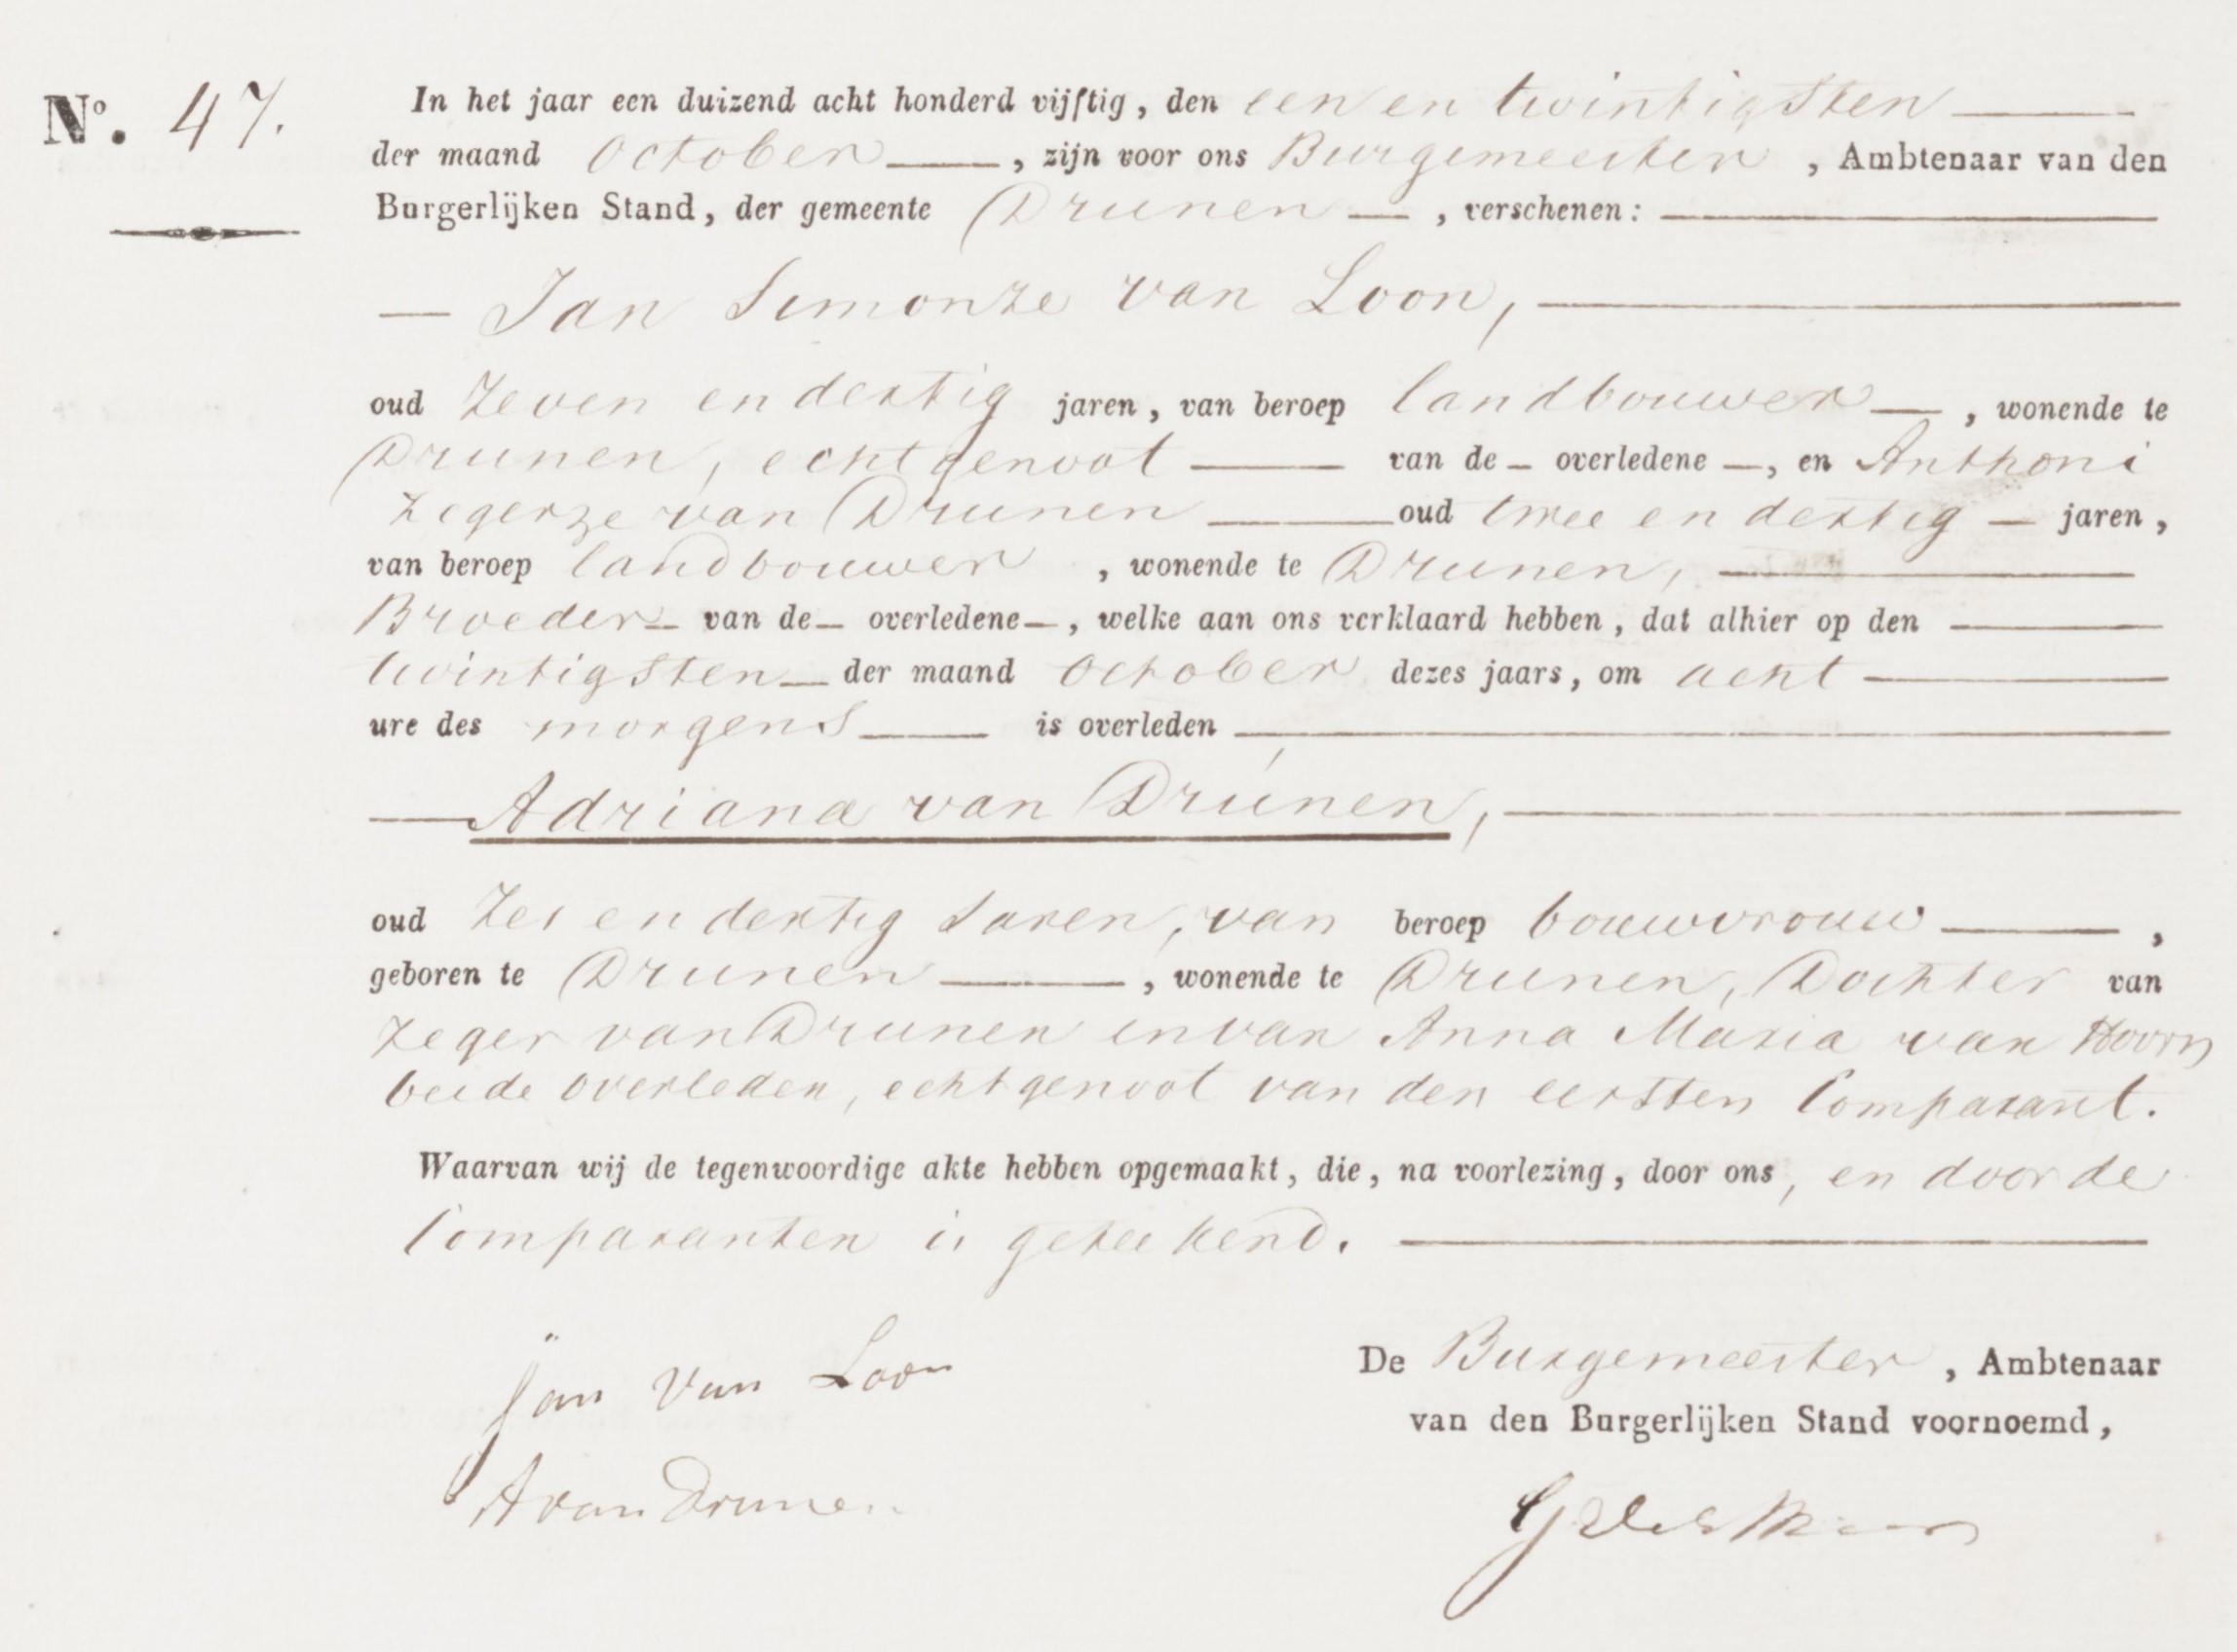 No. 47.
In het jaar een duizend acht honderd vijftig, den een en twintigsten
der maand October, zijn voor ons Burgemeester, Ambtenaar van den
Burgerlijken Stand, der gemeente Drunen, verschenen:
Jan Simonze van Loon,
oud Zeven en dertig jaren, van beroep landbouwer, wonende te
Drunen, echtgenoot van de overledene, en Anthoni
Zegerze van Drunen oud twee en dertig jaren,
van beroep landbouwer, wonende te Drunen,
Broeder van de overledene, welke aan ons verklaard hebben, dat alhier op den
twintigsten der maand October dezes jaars, om acht
ure des morgens is overleden
Adriana van Drunen,
oud Zes en dertig Jaren, van beroep bouwvrouw,
geboren te Drunen, wonende te Drunen, Dochter van
Zeger van Drunen en van Anna Maria van Hoorn
beide overleden, echtgenoot van den eersten Comparant.
Waarvan wij de tegenwoordige akte hebben opgemaakt, die, na voorlezing, door ons, en door de
Comparanten is geteekend.
Jan Van Loon
A van Drunen
De Burgemeester, Ambtenaar
van den Burgerlijken Stand voornoemd,